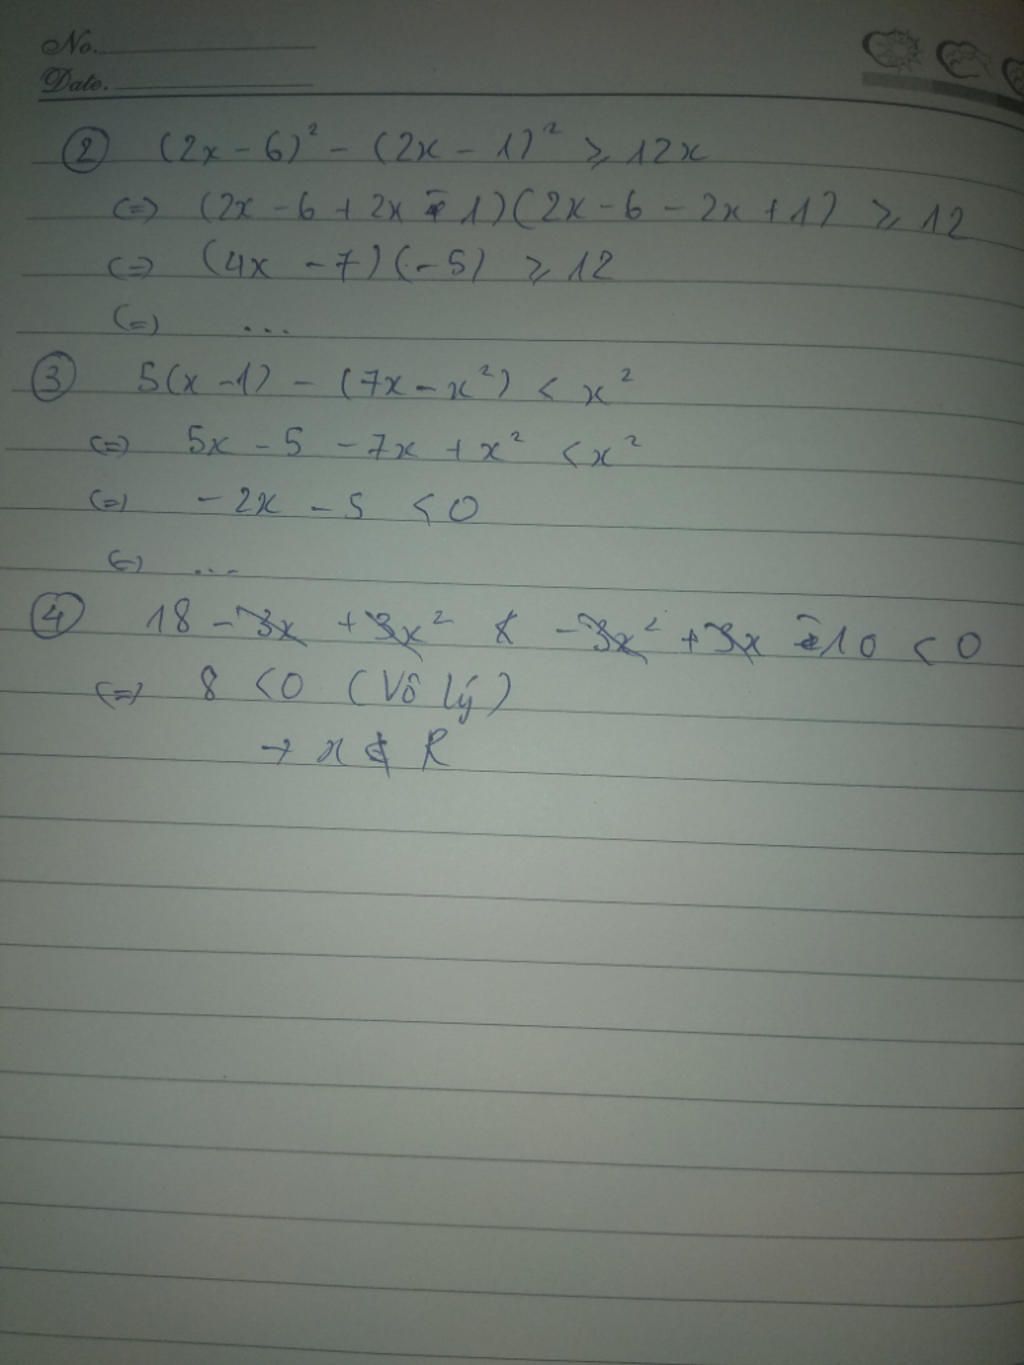 No.
Date.
② (2x - 6)² - (2x - 1)² ≥ 12x
(=) (2x - 6 + 2x - 1)(2x - 6 - 2x + 1) ≥ 12
(=) (4x - 7)(-5) ≥ 12
(=) ...
③ 5(x - 1) - (7x - x²) < x²
(=) 5x - 5 - 7x + x² < x²
(=) - 2x - 5 < 0
(=) ...
④ 18 - 3x + 3x² - 3x² + 3x - 10 < 0
(=) 8 < 0 (Vô lý)
→ x ∉ R